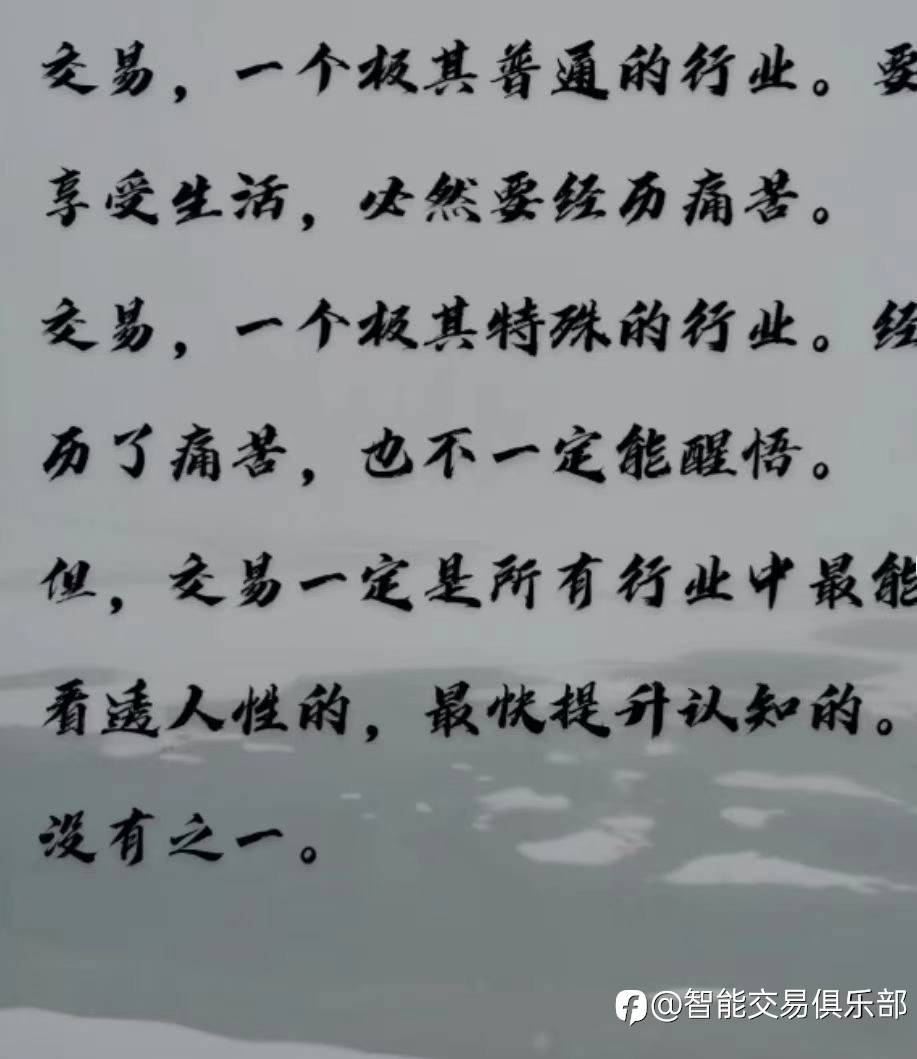 交易，一个极其普通的行业。要
享受生活，必然要经历痛苦。
交易，一个极其特殊的行业。经
历了痛苦，也不一定能醒悟。
但，交易一定是所有行业中最能
看透人性的，最快提升认知的。
没有之一。
@智能交易俱乐部